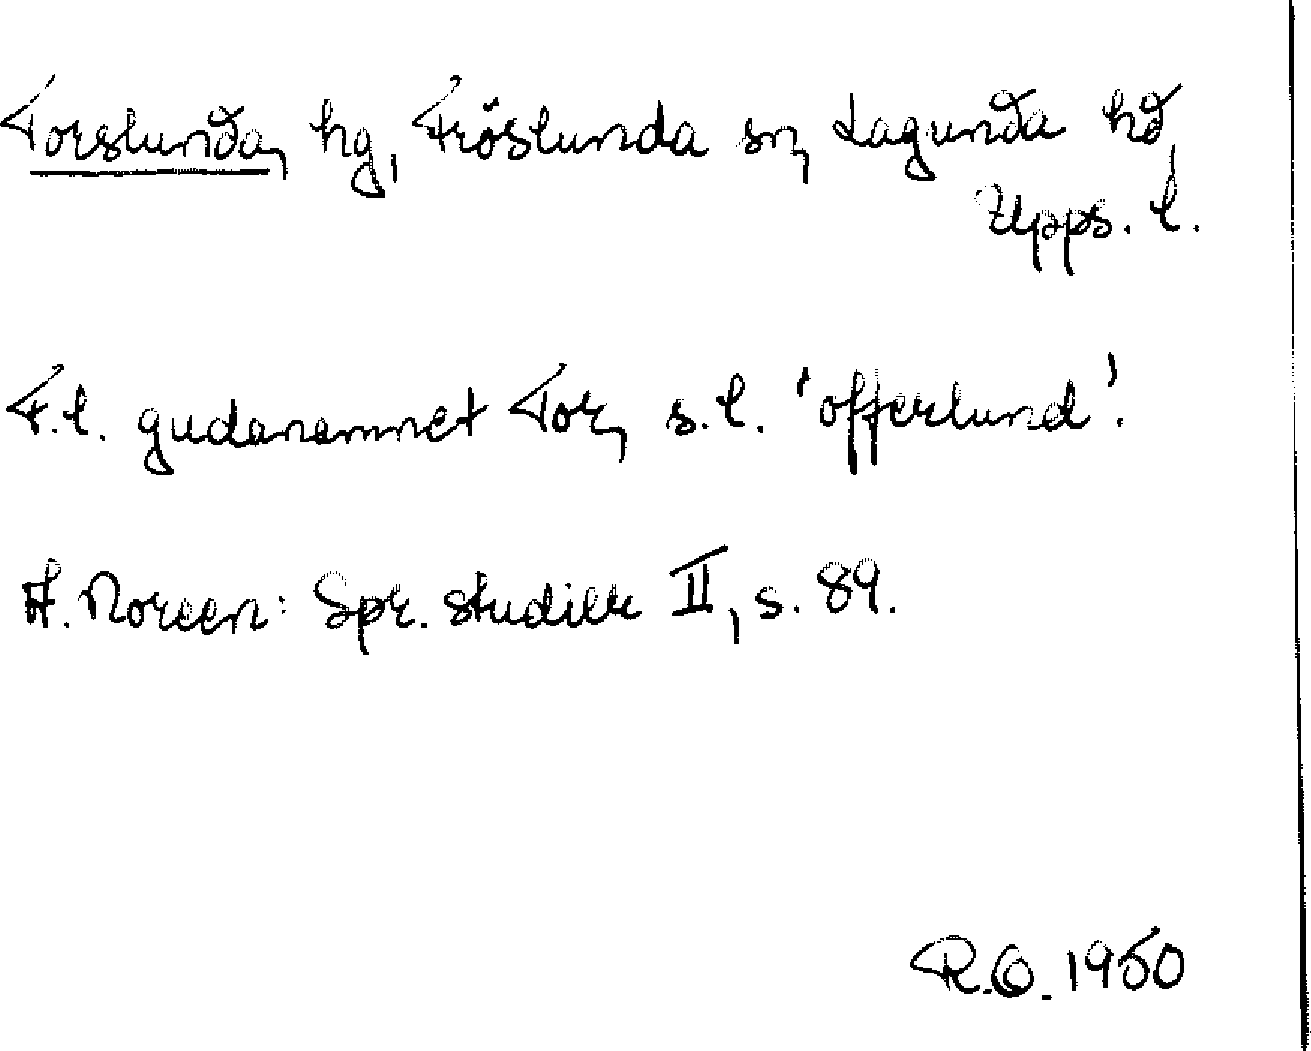 Torslunda, hg, Fröslunda sn, Lagunda hd,
Upps. l.
F.l. gudanamnet Tor, s.l. 'offerlund'.
A. Noreen: Spr. studier II, s. 89.
R.O. 1950